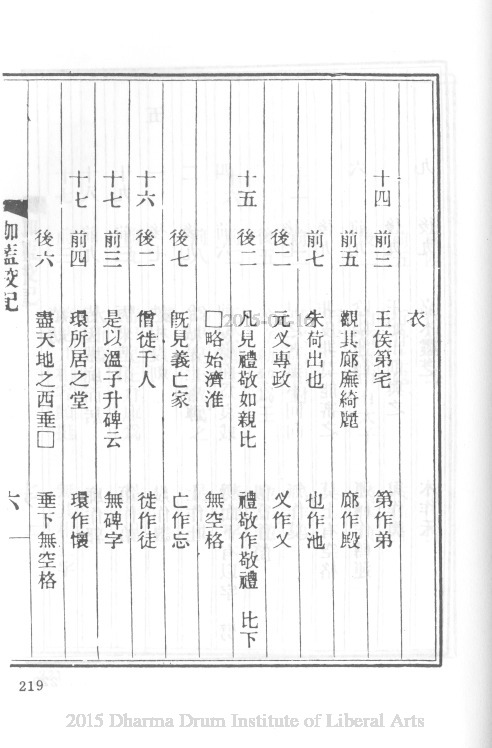 衣
十四 前三 王侯第宅 第作弟
前五 觀其廊廡綺麗 廊作殿
前七 朱荷出也 也作池
後二 元义專政 义作乂
十五 後二 凡見禮敬如親比 禮敬作敬禮 比下
□略始濟淮 無空格
後七 旣見義亡家 亡作忘
十六 後二 僧徙千人 徙作徒
十七 前三 是以溫子升碑云 無碑字
十七 前四 環所居之堂 環作懷
後六 盡天地之西垂□ 垂下無空格
伽藍校記 六
219
2015-04-16
2015 Dharma Drum Institute of Liberal Arts